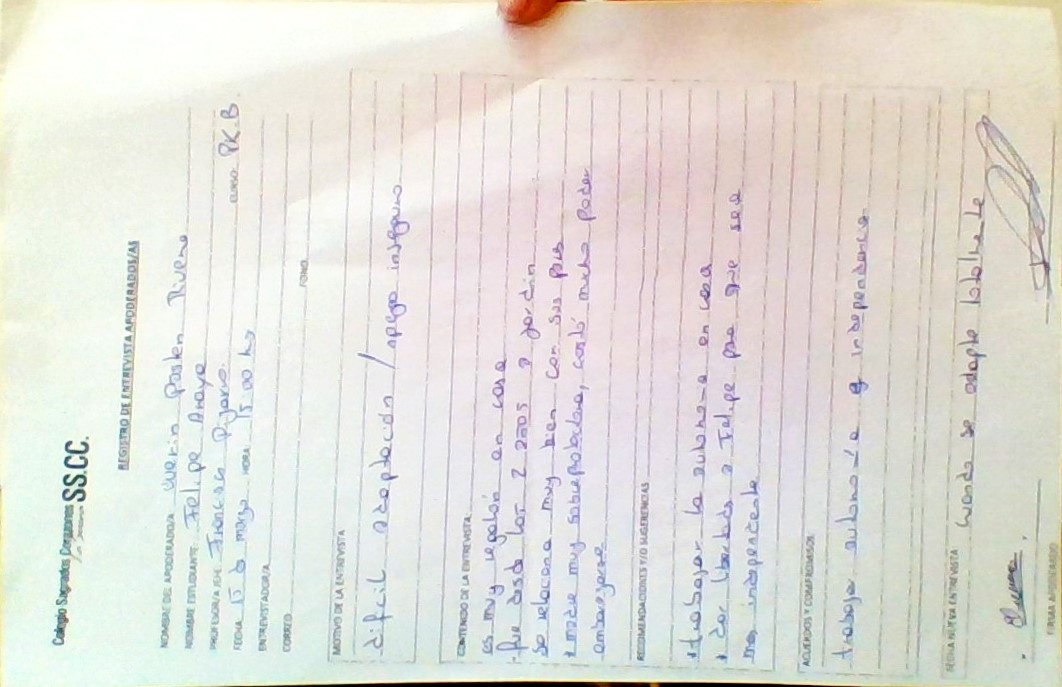 Colegio Sagrados Corazones SS.CC.
REGISTRO DE ENTREVISTA APODERADOS/AS
NOMBRE DEL APODERADO/A Pasten Rivera
NOMBRE ESTUDIANTE Felipe Araya
PROFESOR/A JEFE Francisca Pizarro CURSO PK.B
FECHA 15 de mayo HORA 15:00 hrs
ENTREVISTADOR/A
CORREO FONO
MOTIVO DE LA ENTREVISTA
dificil adaptación / apego inseguro
CONTENIDO DE LA ENTREVISTA
es muy regalón en casa
fue desde los 2 años a jardín
Se relaciona muy bien con sus
madre muy sobreprotectora, costó mucho poder
embarazarse
RECOMENDACIONES Y/O SUGERENCIAS
trabajar la autonomía en casa
dar libertad a Felipe para que sea
mas independiente
ACUERDOS Y COMPROMISOS
trabajar autonomía e independencia
FECHA NUEVA ENTREVISTA cuando se adapte totalmente
FIRMA APODERADO